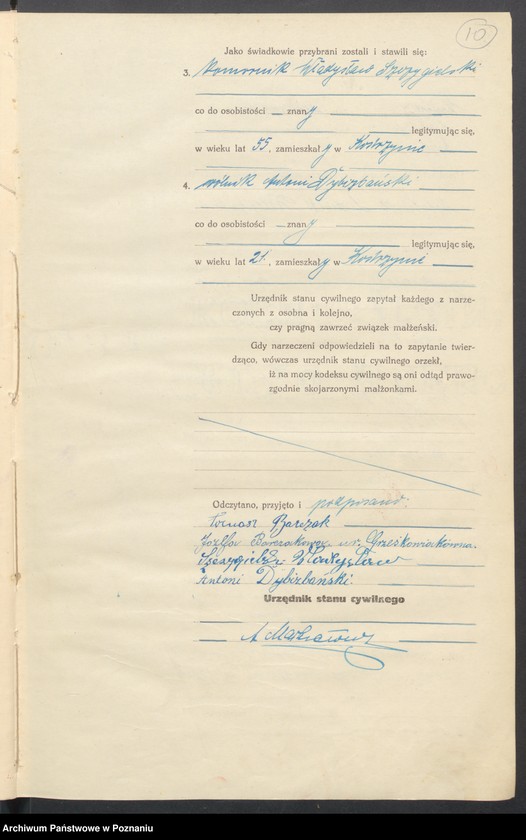 10
Jako świadkowie przybrani zostali i stawili się:
3. komornik Władysław Szczygielski
co do osobistości — znany
legitymując się,
w wieku lat 55, zamieszkały w Kobrzynie
4. rolnik Antoni Dybizbański
co do osobistości — znany
legitymując się,
w wieku lat 21, zamieszkały w Kobrzynie
Urzędnik stanu cywilnego zapytał każdego z narze-
czonych z osobna i kolejno,
czy pragną zawrzeć związek małżeński.
Gdy narzeczeni odpowiedzieli na to zapytanie twier-
dząco, wówczas urzędnik stanu cywilnego orzekł,
iż na mocy kodeksu cywilnego są oni odtąd prawo-
zgodnie skojarzonymi małżonkami.
Odczytano, przyjęto i podpisano:
Tomasz Barczak
Józefa Barczakowa ur. Grześkowiakówna.
Szczygielski Władysław
Antoni Dybizbański.
Urzędnik stanu cywilnego
A.
Archiwum Państwowe w Poznaniu